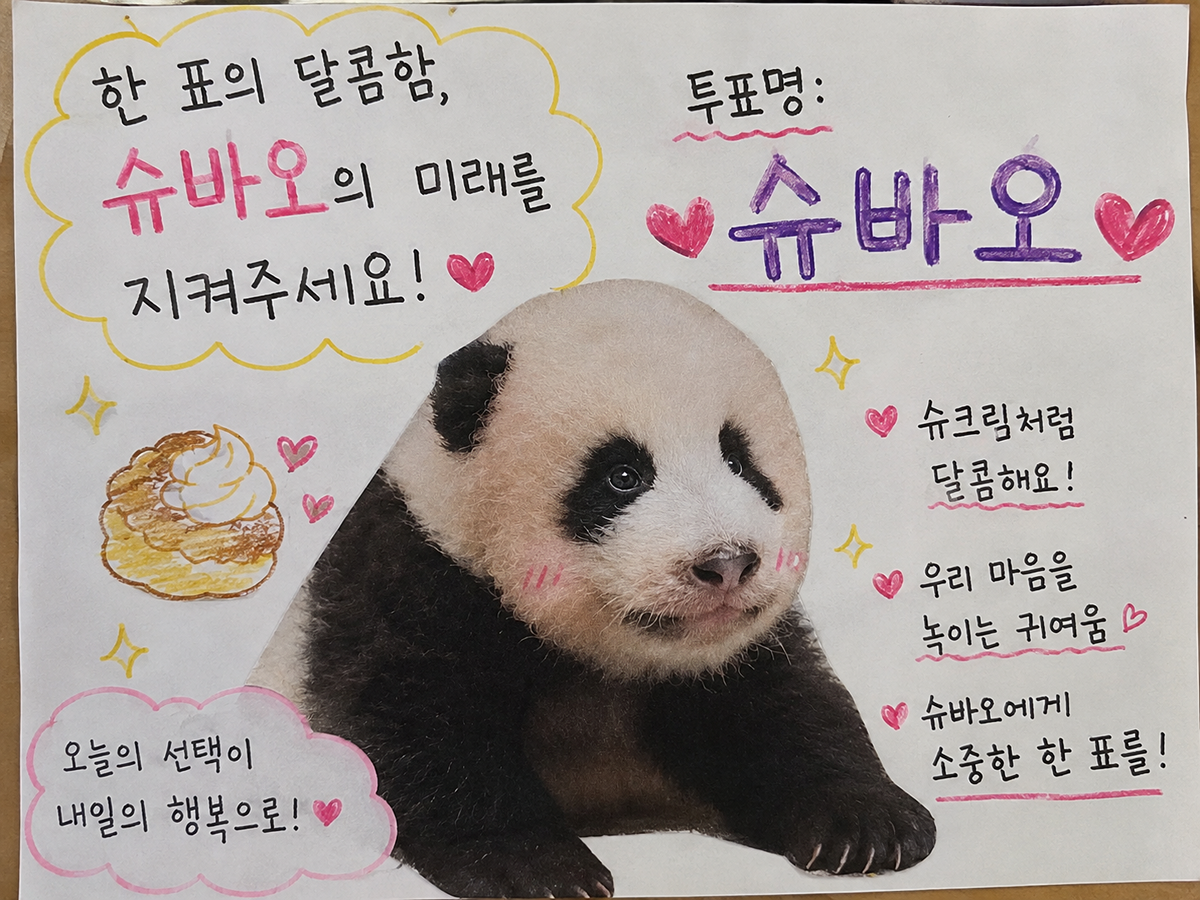 한 표의 달콤함,
슈바오의 미래를
지켜주세요!
투표명:
슈바오
슈크림처럼
달콤해요!
우리 마음을
녹이는 귀여움
슈바오에게
소중한 한 표를!
오늘의 선택이
내일의 행복으로!